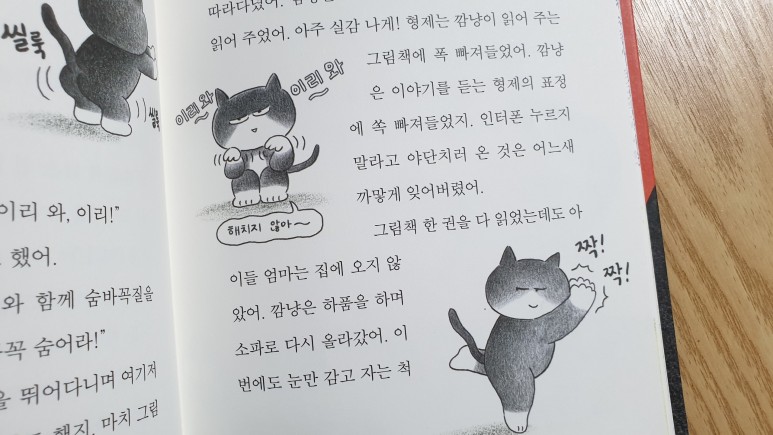 씰룩
씰룩
이리 와, 이리!"
했어.
와 함께 숨바꼭질을
꼭 숨어라!"
뛰어다니며 여기저
했지. 마치 그림
따라다녔어.
읽어 주었어. 아주 실감 나게! 형제는 깜냥이 읽어 주는
그림책에 폭 빠져들었어. 깜냥
은 이야기를 듣는 형제의 표정
에 쏙 빠져들었지. 인터폰 누르지
말라고 야단치러 온 것은 어느새
까맣게 잊어버렸어.
이리 와
이리 와
해치지 않아~
그림책 한 권을 다 읽었는데도 아
이들 엄마는 집에 오지 않
았어. 깜냥은 하품을 하며
소파로 다시 올라갔어. 이
번에도 눈만 감고 자는 척
짝!
짝!